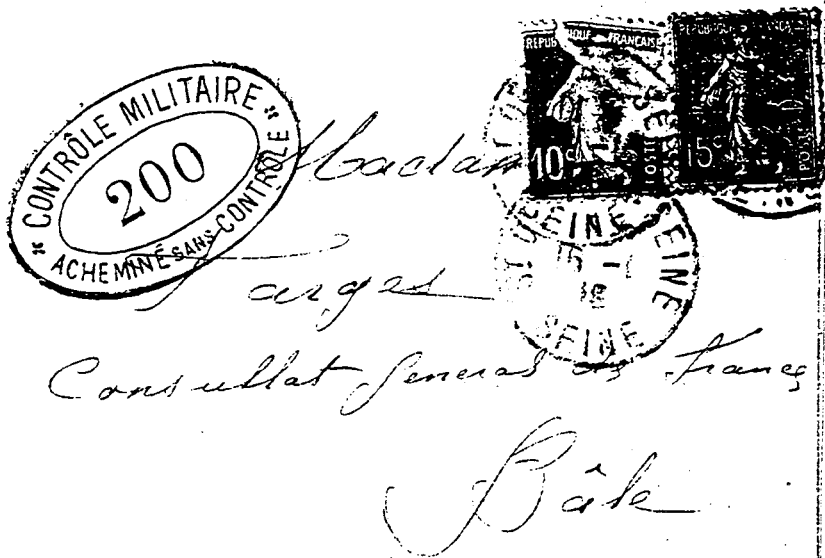 CONTRÔLE MILITAIRE
200
ACHEMINÉ SANS CONTRÔLE
REPUBLIQUE FRANÇAISE
10c
POSTES
REPUBLIQUE FRANÇAISE
15c
POSTES
SEINE
SEINE
Madame
Farges
Consullat General de France
Bâle